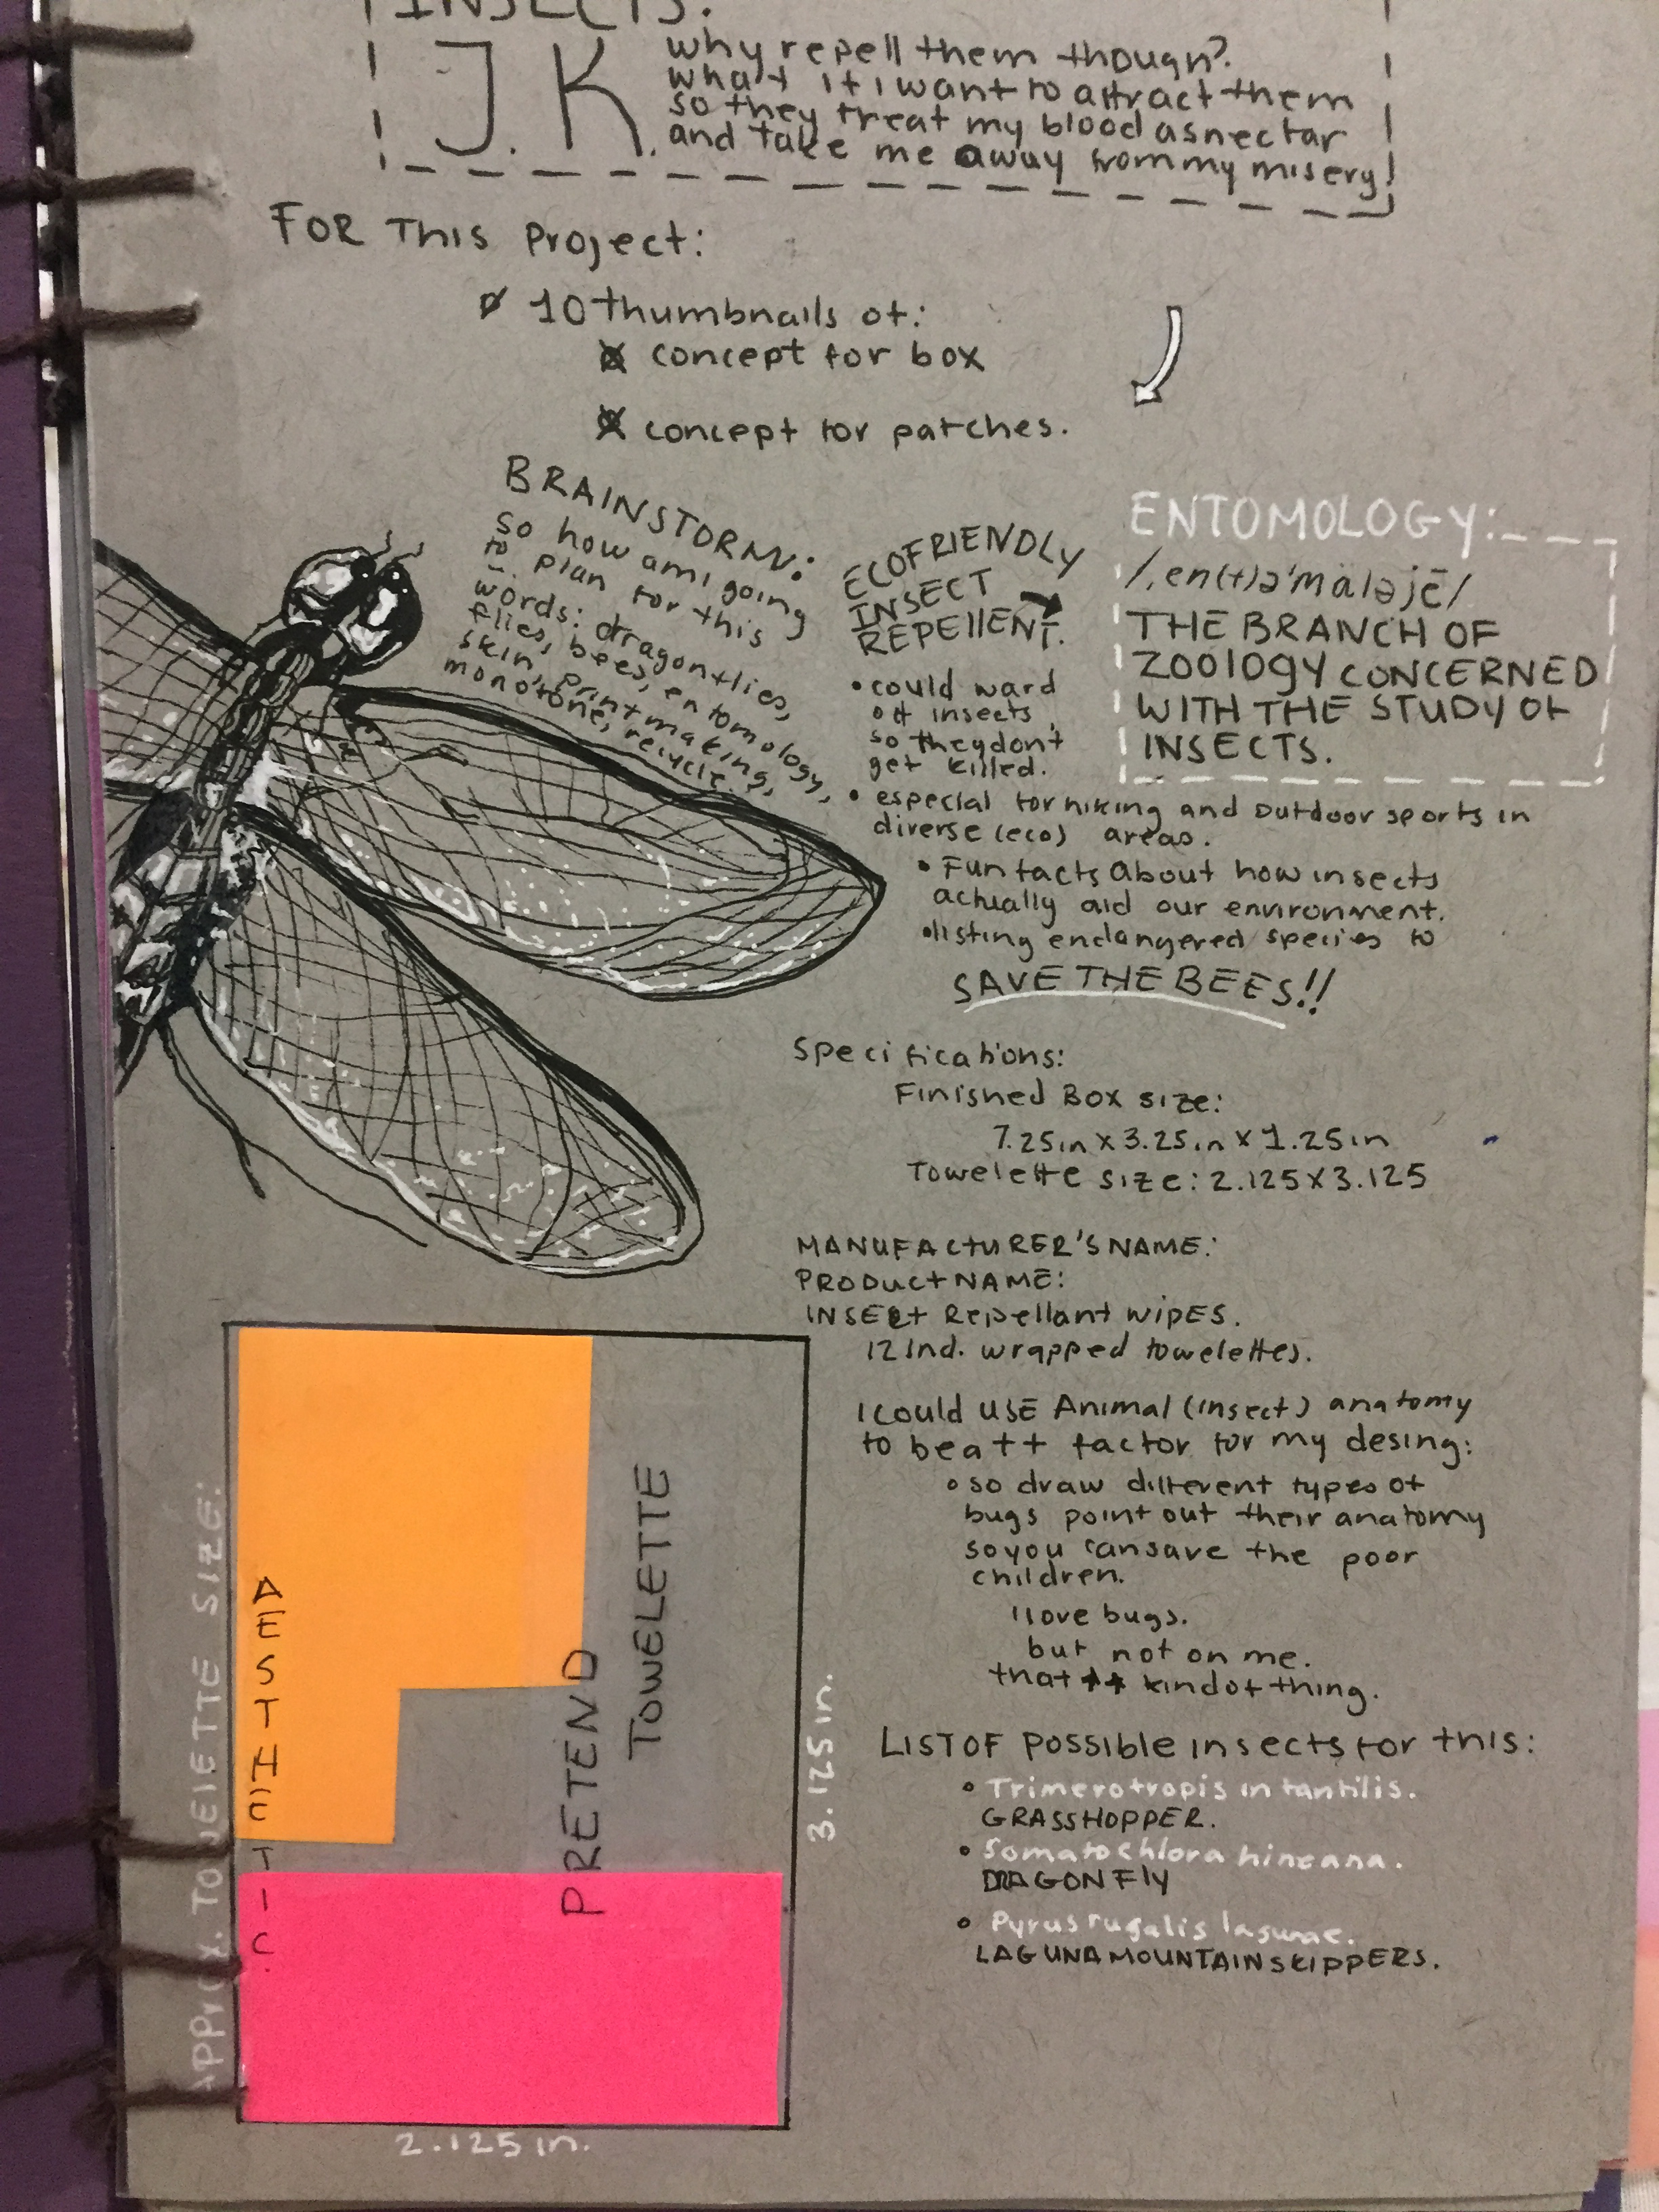 INSECTS.
J.K.
why repell them though?
what if i want to attract them
so they treat my blood as nectar
and take me away from my misery!
FOR This Project:
10 thumbnails of:
concept for box
concept for patches.
BRAINSTORM:
so how am i going
to plan for this
words: dragonflies,
flies, bees, entomology,
skin, printmaking,
monotone, recycle.
ECOFRIENDLY
INSECT
REPEllENT.
• could ward
off insects
so they don't
get killed.
• especial for hiking and outdoor sports in
diverse (eco) areas.
• Fun facts About how insects
actually aid our environment.
• listing endangered species to
SAVE THE BEES!!
ENTOMOLOGY:
/ˌen(t)əˈmäləjē/
THE BRANCH OF
ZOOlOgy CONCERNED
WITH THE STUDY OF
INSECTS.
Specifications:
Finished Box size:
7.25in x 3.25in x 1.25in
Towelette size: 2.125x3.125
MANUFACTURER'S NAME:
PRODUCT NAME:
INSECt Repellant WIPES.
12 Ind. wrapped towelettes.
I could USE Animal (insect) anatomy
to be a ++ factor for my desing:
• so draw different types of
bugs point out their anatomy
so you can save the poor
children.
I love bugs.
but not on me.
that ++ kind of thing.
LIST OF Possible insects for this:
• Trimerotropis infantilis.
GRASSHOPPER.
• Somatochlora hineana.
DRAGONFly
• Pyrus rugalis lagunae.
LAGUNA MOUNTAIN SKIPPERS.
Approx. TOWElETTE SIZE:
AESTHETIC.
PRETEND
TOWELETTE
3.125 in.
2.125 in.